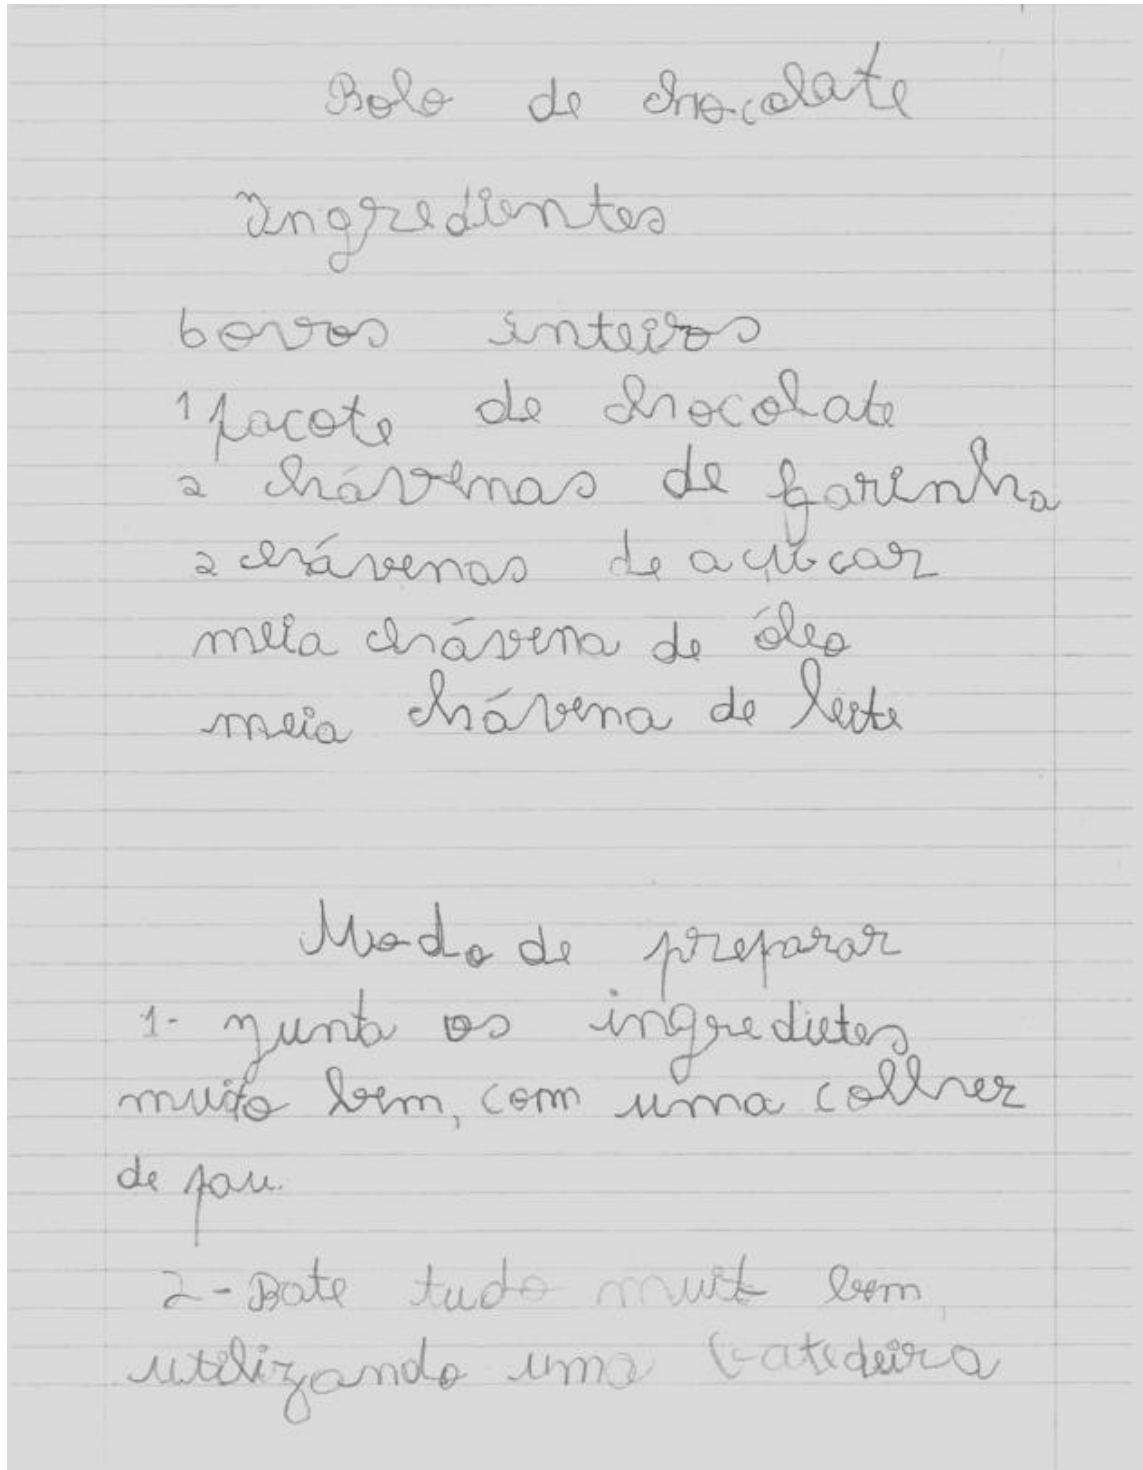 Bolo de chocolate
Ingredientes
6 ovos inteiros
1 pacote de chocolate
2 chávenas de farinha
2 chávenas de açúcar
meia chávena de óleo
meia chávena de leite
Modo de preparar
1- Junta os ingredietes
muito bem, com uma colher
de pau.
2- Bate tudo muito bem,
utilizando uma batedeira